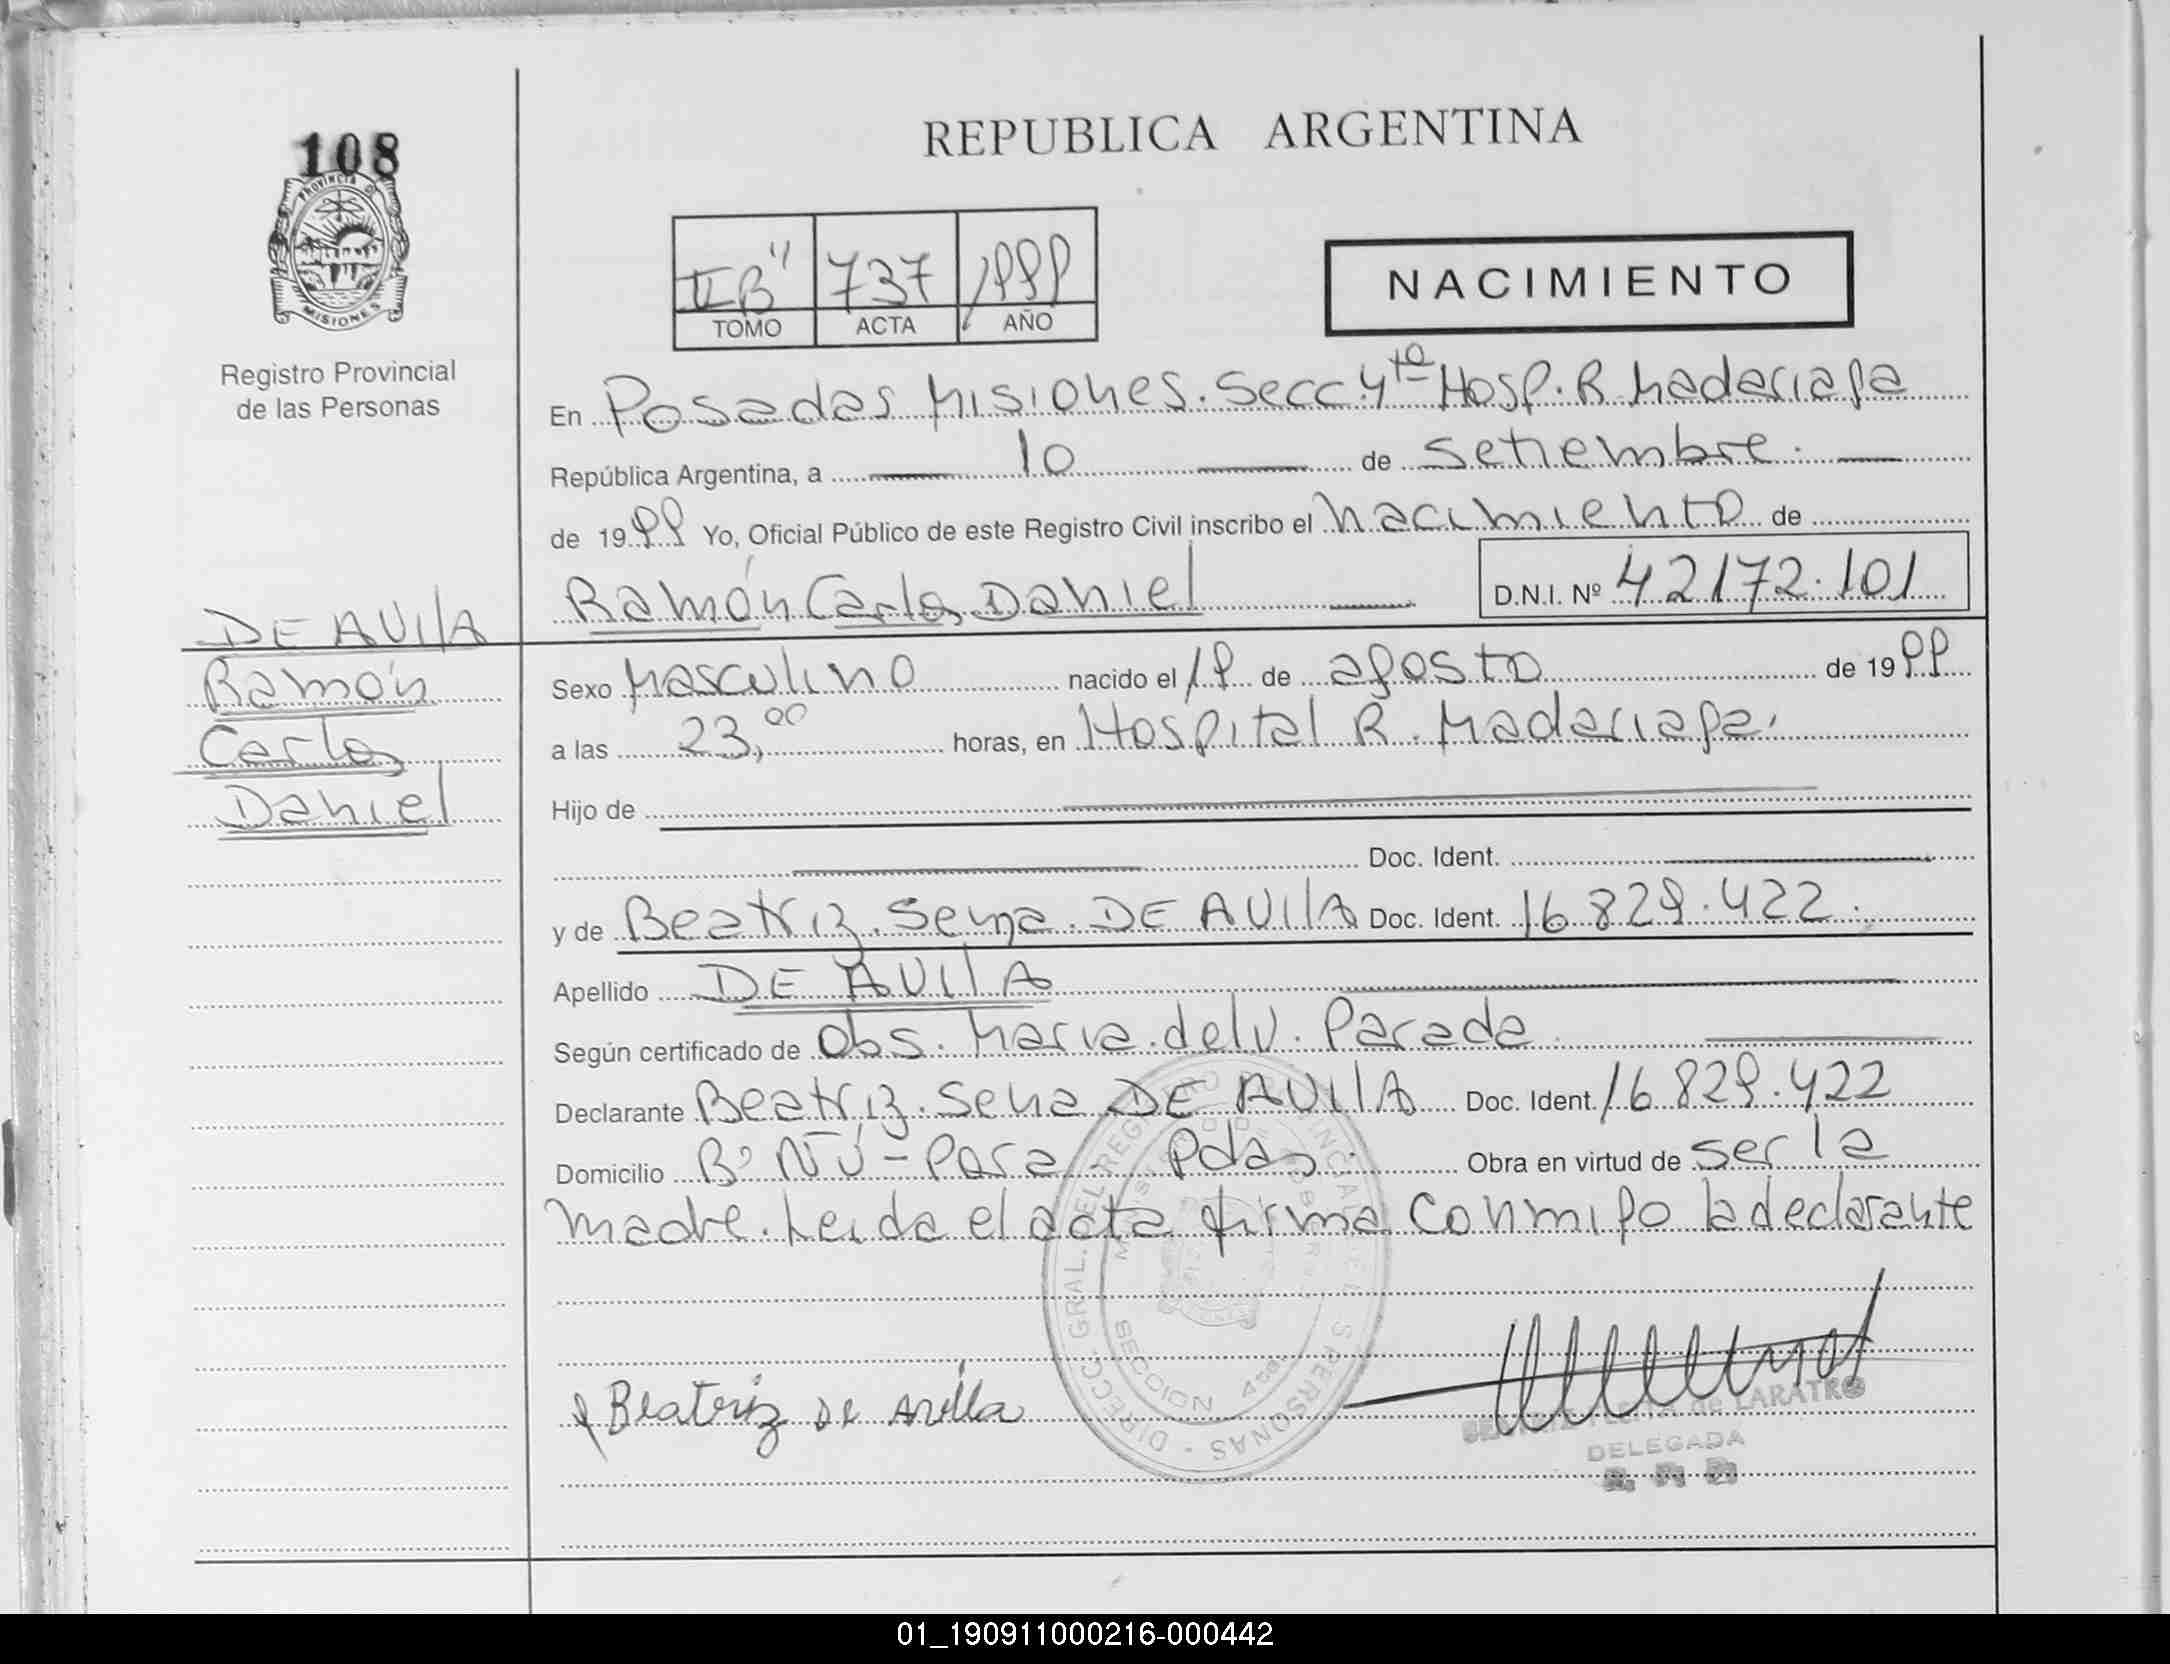 108
PROVINCIA D
MISIONES
Registro Provincial
de las Personas
REPUBLICA ARGENTINA
II B" 737 1999
TOMO ACTA AÑO
NACIMIENTO
En Posadas Misiones. Secc. 4ta Hosp. R. Madariaga
República Argentina, a 10 de Setiembre.
de 1999 Yo, Oficial Público de este Registro Civil inscribo el Nacimiento de
Ramón Carlos Daniel D.N.I. Nº 42172.101
DE AVILA
Ramón
Carlos
Daniel
Sexo Masculino nacido el 19 de agosto de 1999
a las 23,00 horas, en Hospital R. Madariaga.
Hijo de
Doc. Ident.
y de Beatriz. Sena. DE AVILA Doc. Ident. 16.829.422.
Apellido DE AVILA
Según certificado de Obs. Maria. del V. Parada
Declarante Beatriz. Sena DE AVILA Doc. Ident. 16.829.422
Domicilio Bº ÑU-Pora - Pdas. Obra en virtud de ser la
madre. Leida el acta firma conmigo la declarante
DIRECC. GRAL. DEL REGISTRO PROVINCIAL DE LAS PERSONAS
SECCION 4ta
Beatriz De Avilla
de LARATRO
DELEGADA
01_190911000216-000442